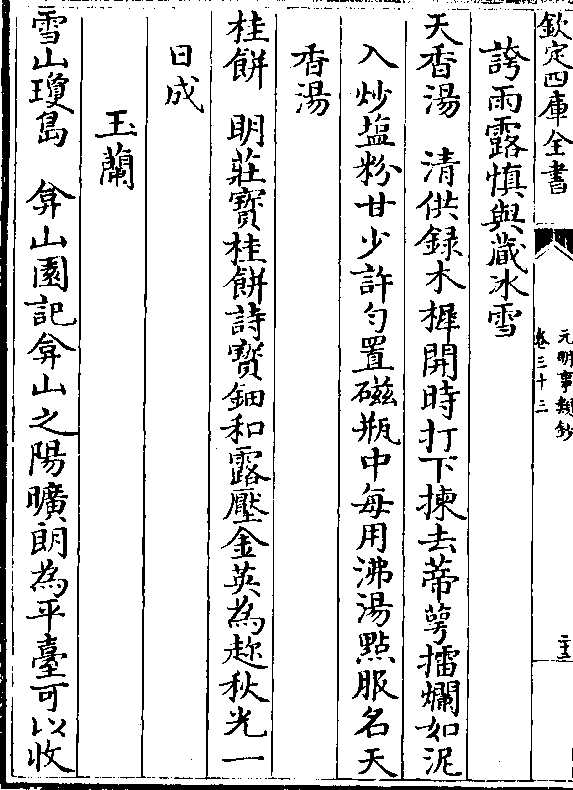 欽定四庫全書
元明事類鈔
卷三十二
誇雨露慎與藏冰雪
天香湯　清供録木樨開時打下揀去蒂蕚擂爛如泥
入炒塩粉甘少許勻置磁瓶中每用沸湯點服名天
香湯
桂餅　明莊寳桂餅詩寳鈿和露壓金英為趂秋光一
日成
玉蘭
雪山瓊島　弇山園記弇山之陽曠朗為平臺可以收